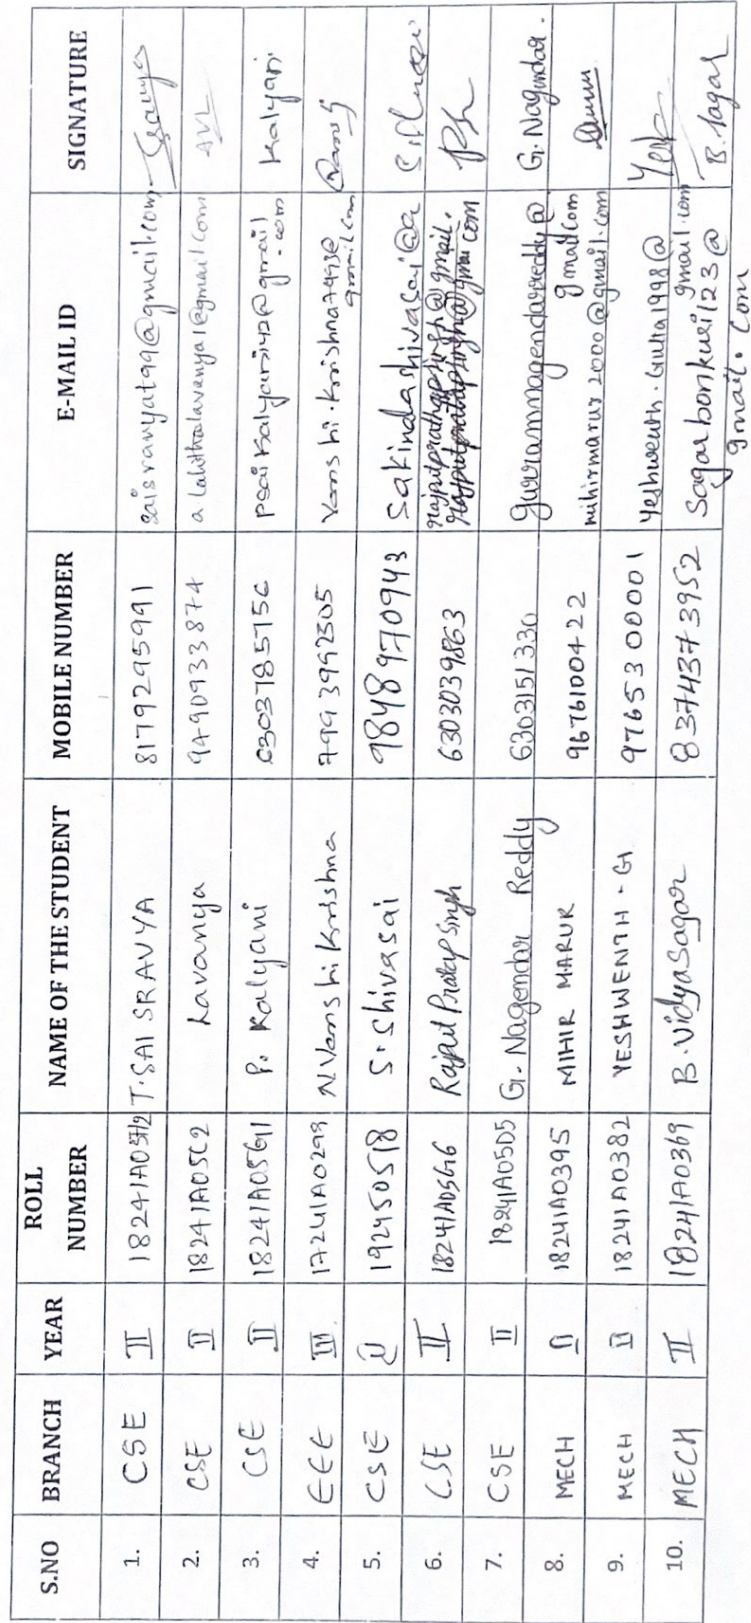 S.NO BRANCH YEAR ROLL NUMBER NAME OF THE STUDENT MOBILE NUMBER E-MAIL ID SIGNATURE
1. CSE II 18241A05H2 T.SAI SRAVYA 8179295991 saisravyat99@gmail.com Sravya
2. CSE II 18241A05C2 Lavanya 9490933874 alalithalavanya1@gmail.com AVL
3. CSE II 18241A05G1 P. Kalyani 6303785156 psaikalyani42@gmail.com Kalyani
4. EEE III 17241A0299 N.Vamshi Krishna 7993992505 Vamshi.Krishna7993@gmail.com
5. CSE II 192450518 S. Shivasai 9848970943 Sakindashivasai@g
6. CSE II 18241A05G6 Rajput Pratap Singh 6303039863 rajputprathapsingh@gmail.com
7. CSE II 18241A05D5 G. Nagendar Reddy 6303151330 gurramnagendarreddy@gmail.com G. Nagendar.
8. MECH II 18241A0395 MIHIR MARUR 9676100422 mihirmarur2000@gmail.com
9. MECH II 18241A0382 YESHWENTH.G 9765300001 Yeshwenth.Gutta1998@gmail.com Yesh
10. MECH II 18241A0369 B. Vidya Sagar 8374373952 Sagarbonkuri123@gmail.com B. Sagar